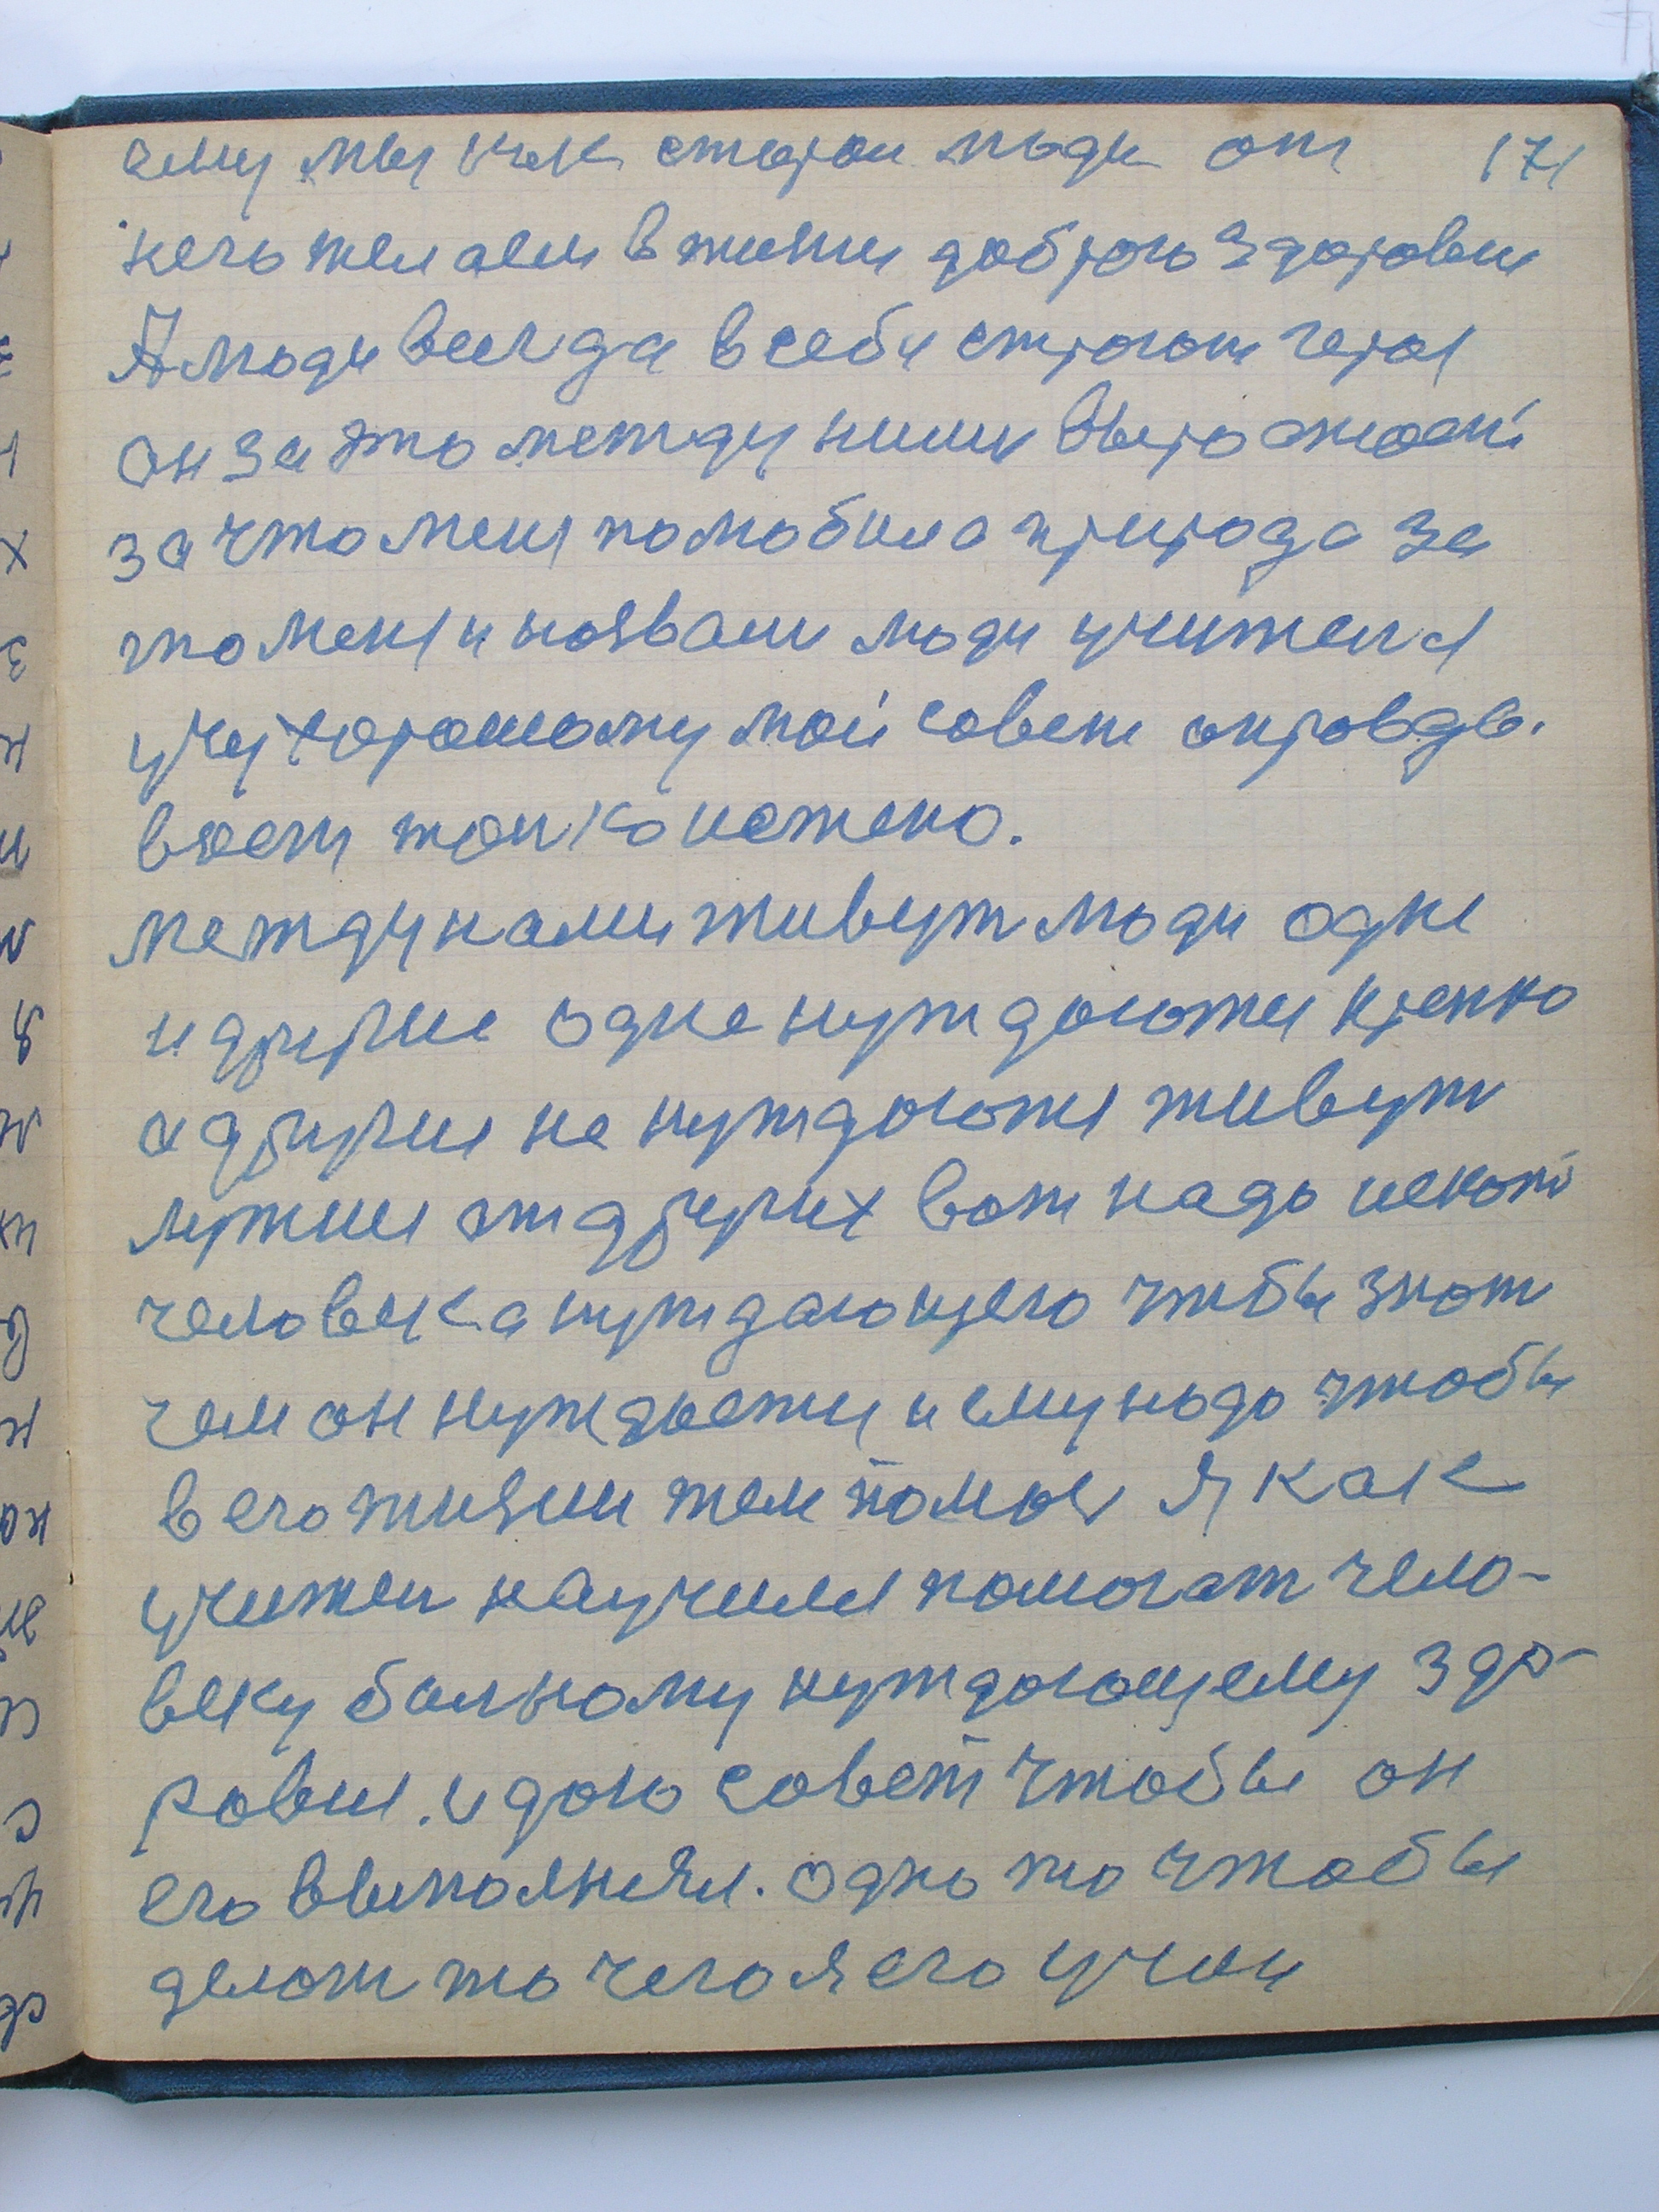 ему мы как старои люди от 171
него желаем в жизни доброго здоровия
А люди всегда в себе строют героя
он за это между ними выражоет
за что меня полюбила природа за
то меня и назвали люди учителя
учу хорошому мой совет оправды.
вает тои
между нами живут люди одне
и другие одне нуждаются крепко
а другие не нуждаются живут
лутше от других вот надо искат
человека нуждающего чтобы знат
чем он нуждается и ему надо чтобы
в его жизни тем помоч Я как
учител научился помогат чело-
веку болному нуждающему здо-
ровия. и даю совет чтобы он
его выполнял. одно то чтобы
делат то чего я его учил